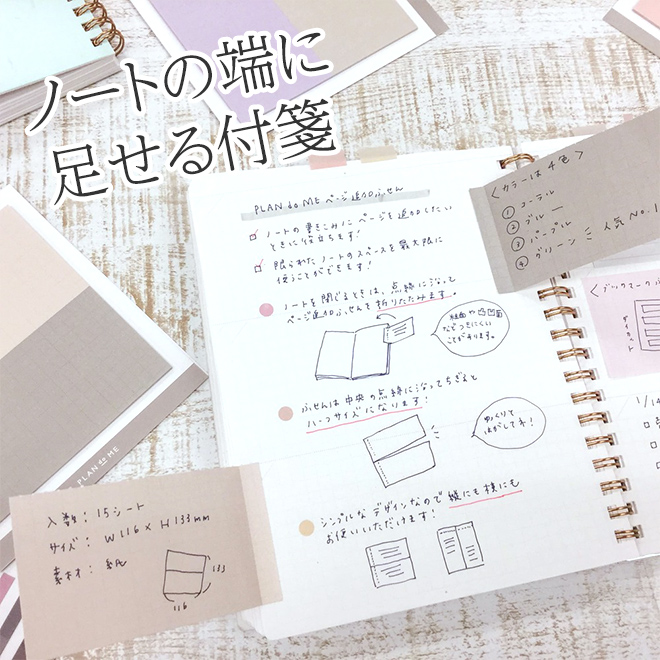 ノートの端に
足せる付箋
PLAN do ME ページ追加ふせん
ノートの書きこみにページを追加したい
ときに役立ちます!
限られたノートのスペースを最大限に
使うことができます!
ノートを閉じるときは、点線に沿って
ページ追加ふせんを折りたたみます。
粗面や凸凹面
などつきにくい
ことがあります。
ふせんは中央の点線に沿ってちぎると
ハーフサイズになります!
ゆっくりと
はがしてネ!
シンプルなデザインなので縦にも横にも
お使いいただけます!
<カラーは4色>
① コーラル
② ブルー
③ パープル
④ グリーン
人気No.1
<ブックマークふ
ダイカット
1/14
PLAN do ME
入数: 15シート
サイズ: W116 × H133mm
素材: 紙
133
116